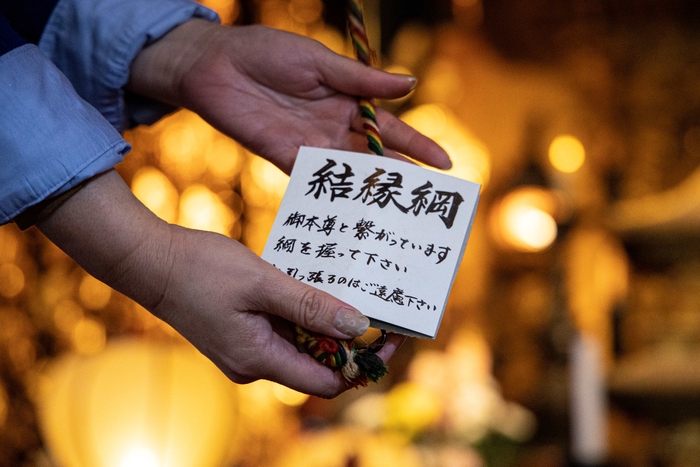 結縁綱
御本尊と繋がっています
綱を握って下さい
引っ張るのはご遠慮下さい